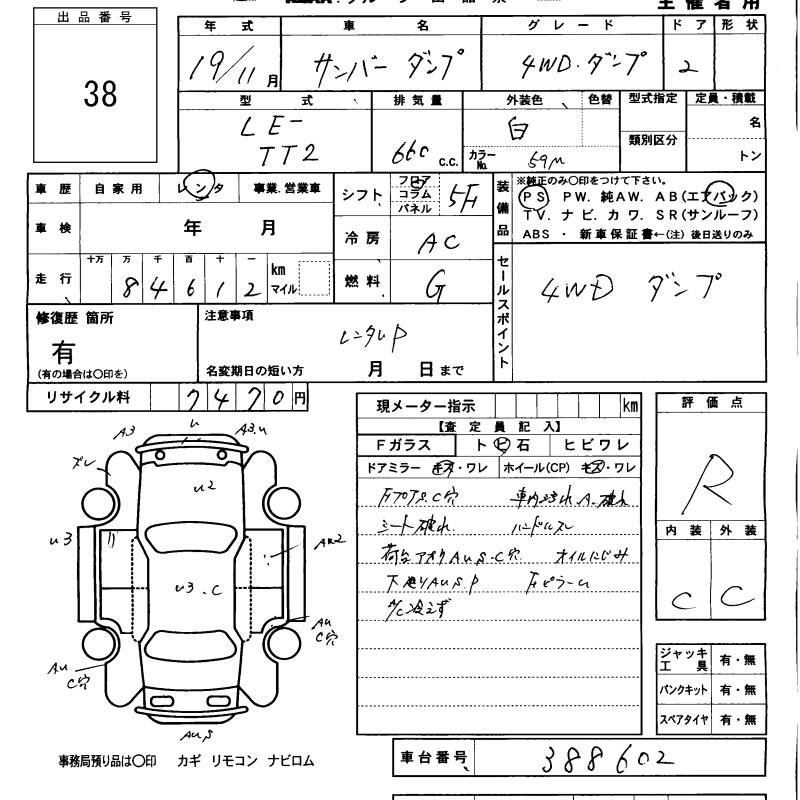 主催者用
出品番号
38
年式 車名 グレード ドア 形状
19/11月 サンバー ダンプ 4WD・ダンプ 2
型式 排気量 外装色 色替 型式指定 定員・積載
LE-
TT2 660 c.c. 白 カラーNo. 59M 類別区分 名
トン
車歴 自家用 レンタ 事業.営業車
シフト フロア コラム パネル 5F
装備品 ※純正のみ○印をつけて下さい。
PS PW. 純AW. AB(エアバック)
TV. ナビ. カワ. SR(サンルーフ)
ABS ・ 新車保証書←(注) 後日送りのみ
車検 年 月
冷房 AC
走行 十万 万 千 百 十 一
84612 km マイル
燃料 G
セールスポイント 4WD ダンプ
修復歴 箇所
有
(有の場合は○印を)
注意事項
レンタUP
名変期日の短い方 月 日まで
リサイクル料 7470円
現メーター指示 km
【査定員記入】
Fガラス トビ石 ヒビワレ
ドアミラー キズ・ワレ ホイール(CP) キズ・ワレ
シート破れ ハンドルスレ
荷台アオリAU,S・C穴 オイルにじみ
下廻りAU,S,P FピラーU
A/C冷えず
評価点
R
内装 外装
C C
A3 U A3.U
ズレ
U2
U3 AU2
U3.C
AU C穴
AU C穴
AU,S
ジャッキ工具 有・無
パンクキット 有・無
スペアタイヤ 有・無
事務局預り品は○印 カギ リモコン ナビロム
車台番号 388602